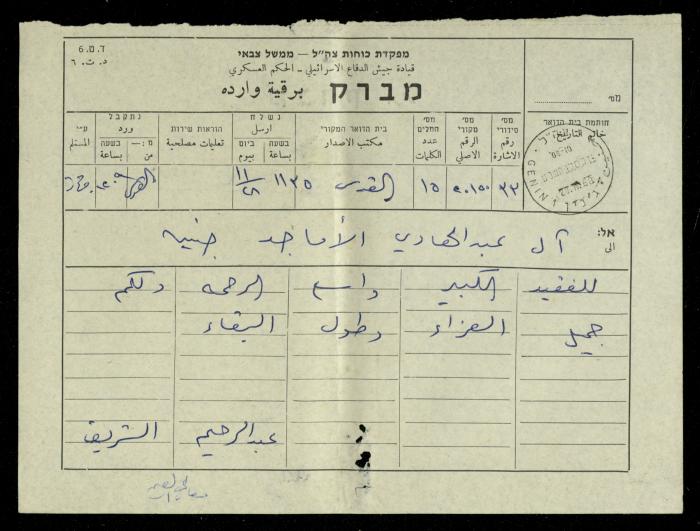 ד.ס. 6
د.ت. ٦
מפקדת כוחות צה"ל — ממשל צבאי
قيادة جيش الدفاع الاسرائيلي - الحكم العسكري
מברק برقية وارده
מס'
חותמת בית הדואר
خاتم التاريخ
מס' סידורי
رقم الاشارة
מס' מקורי
الرقم الاصلي
מס' המלים
عدد الكلمات
בית הדואר המקורי
مكتب الاصدار
נשלח
ارسل
בשעה
بساعة
ביום
بيوم
הוראות שירות
تعليمات مصلحية
נתקבל
ورد
מ:—
من
בשעה
بساعة
ע"י
المستلم
GENIN
٣٣
١٥
القدس
١١٣٥
١١/٢٨
القدس
אל:
الى
آل عبد الهادي الأماجد جنين
للفقيد الكبير واسع الرحمه ولكم
جميل العزاء وطول البقاء
عبدالرحيم الشريف